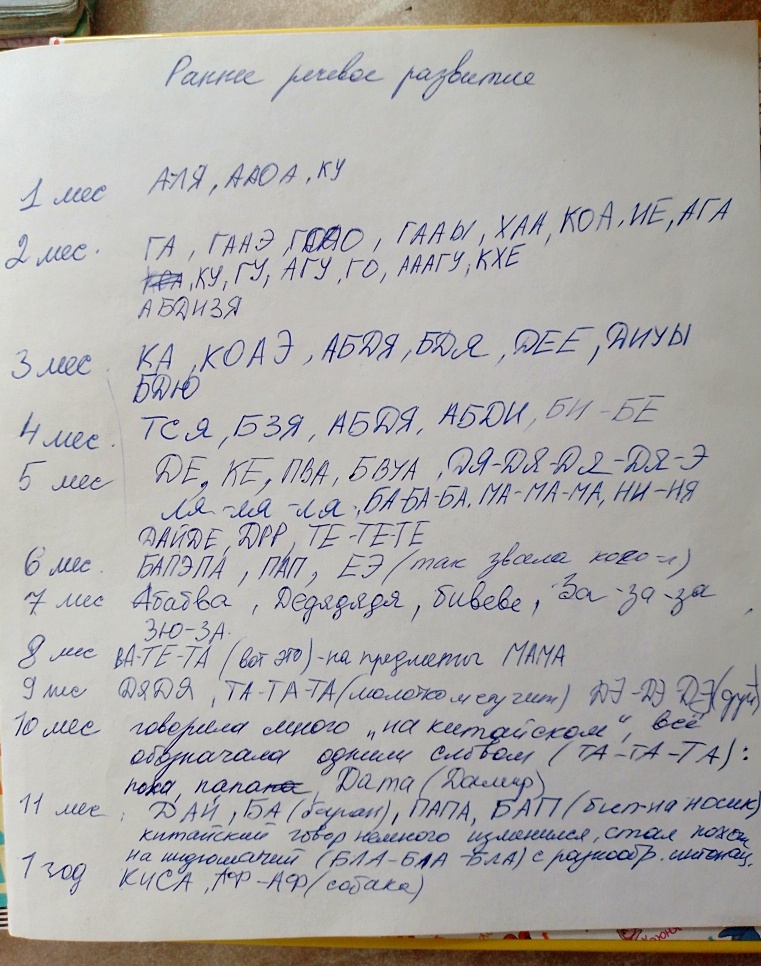 Раннее речевое развитие
1 мес АЛЯ, ААОА, КУ
2 мес. ГА, ГААЭ, ГААЫ, ХАА, КОА, ИЕ, АГА
КУ, ГУ, АГУ, ГО, АААГУ, КХЕ
АБДИЗЯ
3 мес. КА, КОАЭ, АБДЯ, БДЯ, ДЕЕ, ДИУЫ
БДЮ
4 мес. ТСЯ, БЗЯ, АБДЯ, АБДИ, БИ-БЕ
5 мес ДЕ, КЕ, ПВА, БВУА, ДЯ-ДЯ-ДЯ-ДЯ-Э
ЛЯ-ЛЯ-ЛЯ, БА-БА-БА, МА-МА-МА, НИ-НЯ
ДАЙДЕ, ДРР, ТЕ-ТЕ-ТЕ
6 мес. БАПЭПА, ПАП, ЕЭ (так звала кого-л)
7 мес Абабва, Дедядядя, бивеве, За-за-за
ЗЮ-ЗА.
8 мес ВА-ТЕ-ТА (вот это) - на предметы МАМА
9 мес ДЯДЯ, ТА-ТА-ТА (молотком стучит) ДЭ-ДЭ ДЭ
10 мес говорила много „на китайском", всё
обозначала одним словом (ТА-ТА-ТА):
пока, папа, Дата (Дамир)
11 мес. ДАЙ, БА (баран), ПАПА, БАП (бип-на носик)
китайский говор немного изменился, стал похож
на (БЛА-БЛА-БЛА) с разнообр. интонац.
1 год КИСА, АФ-АФ (собака)